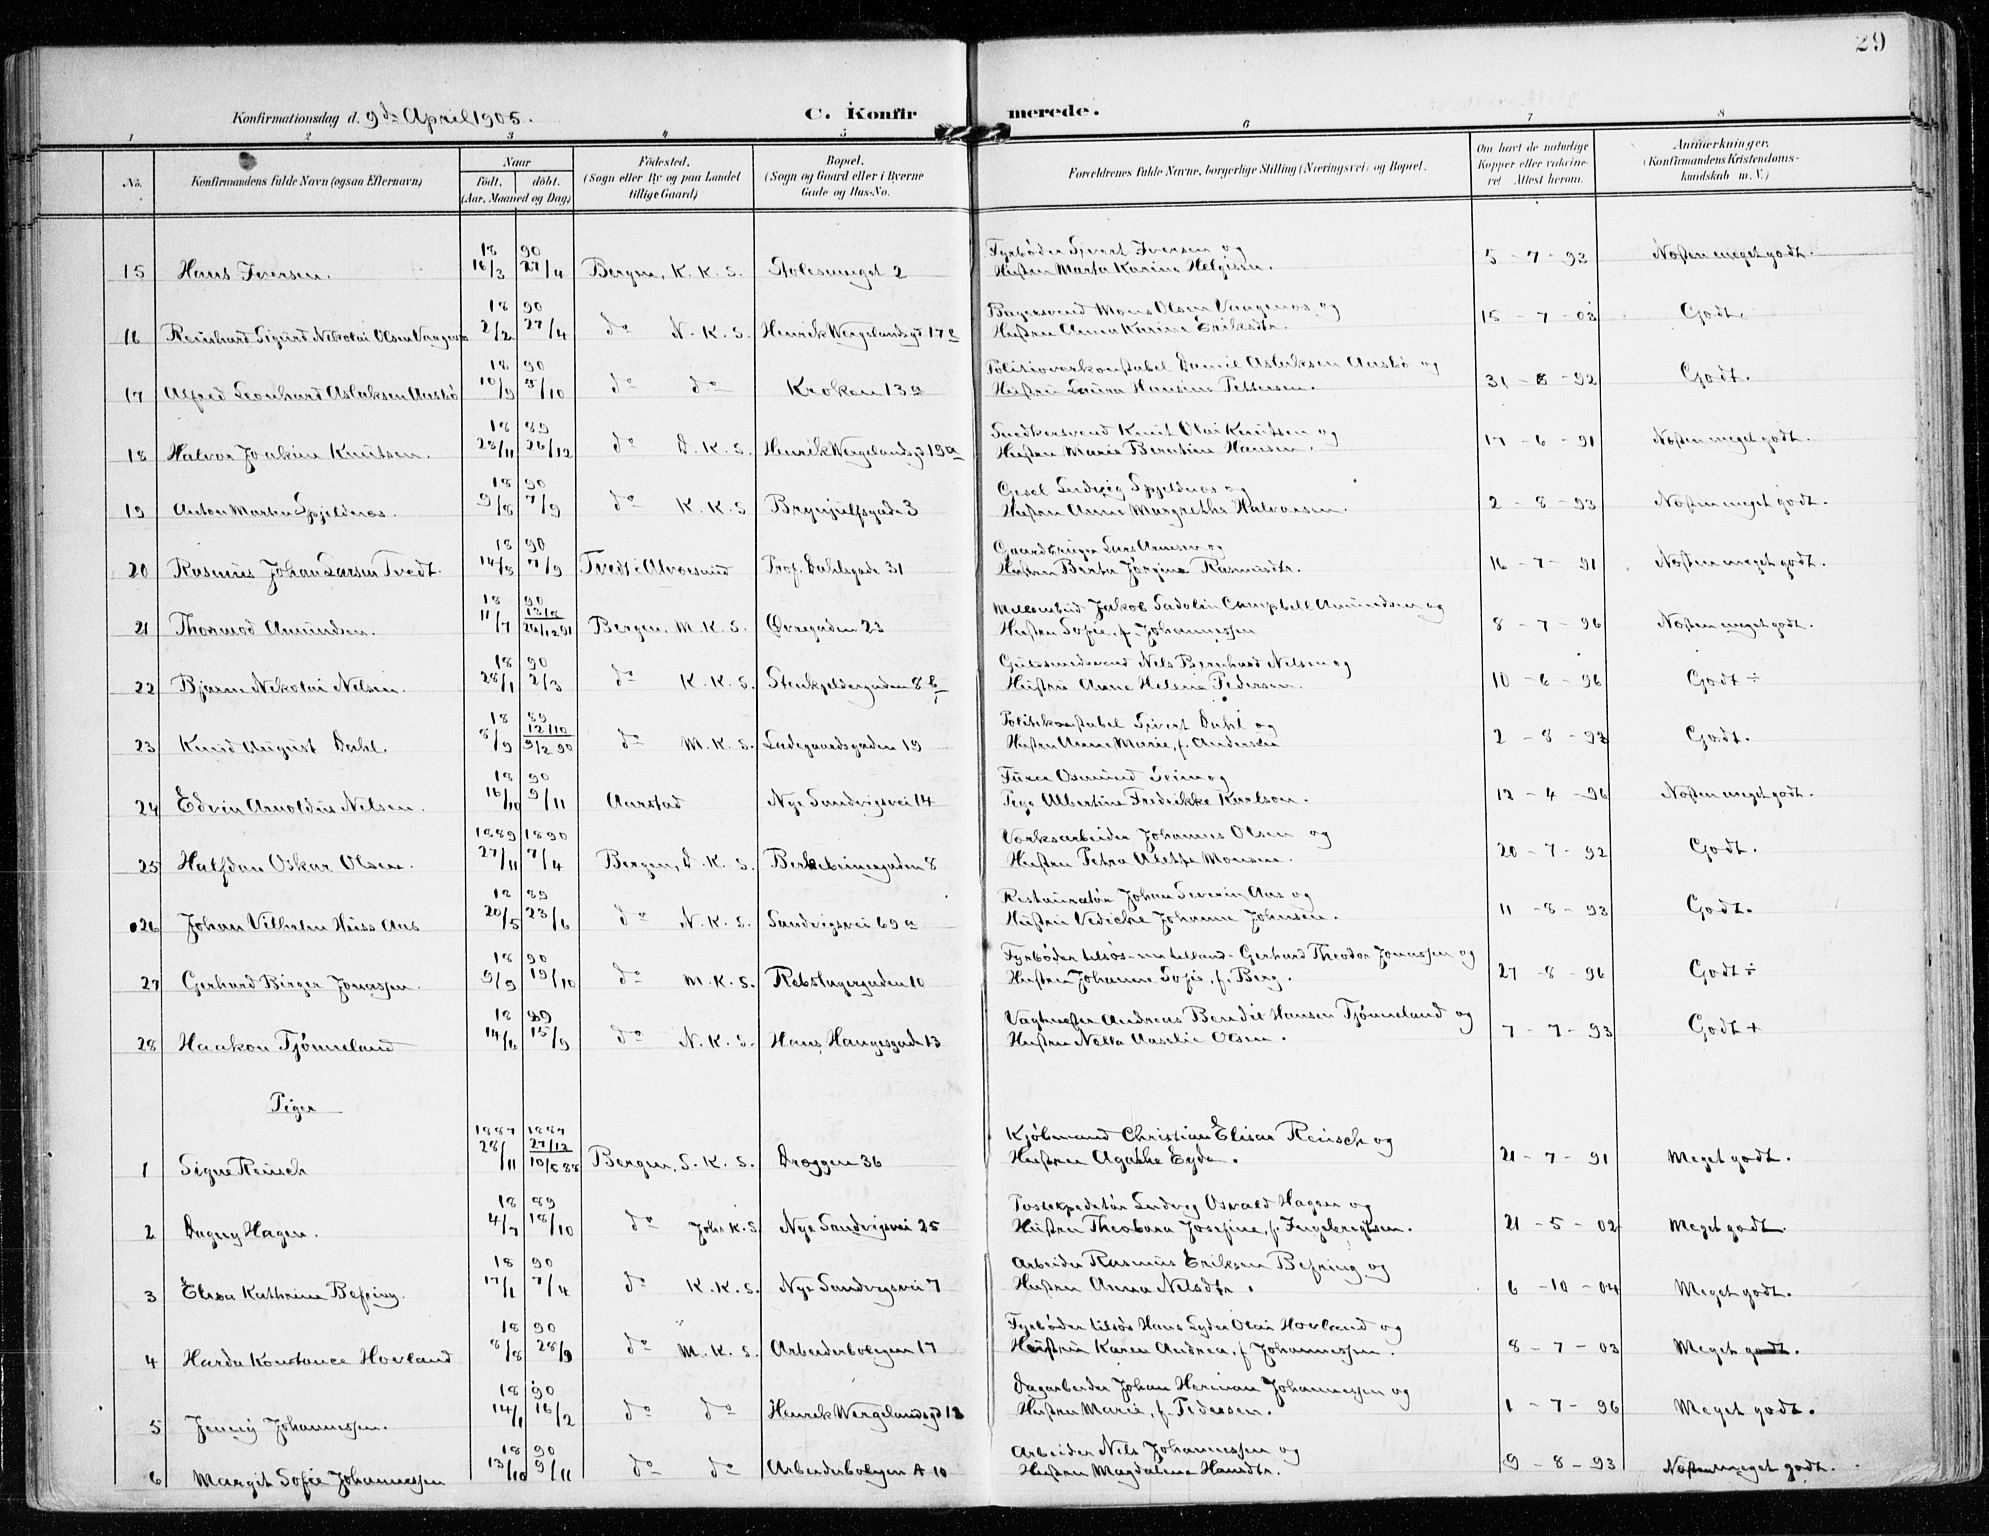 29
Konfirmationsdag d. 9de April 1905.
C. Konfirmerede.
1 2 3 4 5 6 7 8
No. Konfirmandens fulde Navn (ogsaa Efternavn) Naar født. døbt. (Aar, Maaned og Dag) Fødested. (Sogn eller By og paa Landet tillige Gaard) Bopæl. (Sogn og Gaard eller i Byerne Gade og Hus-No. Forældrenes fulde Navne, borgerlige Stilling (Næringsvei) og Bopæl. Om havt de naturlige Kopper eller vaccineret Attest herom. Anmærkninger. (Konfirmandens Kristendomskundskab m. V.)
18 90 Fyrbøder Sjvert Iversen og
15 Hans Iversen. 16/3 27/4 Bergen, K. K. S. Stølesmuget 2 Hustru Marta Karine Helgesen. 5 - 7 - 93 Næsten meget godt.
18 90 Bagersvend Mons Olsen Vaagenæs og
16 Reinhard Sigurd Nikolai Olsen Vaagenæs 2/2 27/4 do N. K. S. Henrik Wergelandsgd 17 Hustru Anna Karine Eriksdtr. 15 - 7 - 03 Godt.
18 90 Politioverkonstabel Daniel Aslaksen Aasbø og
17 Alfred Leonhard Aslaksen Aasbø 10/9 5/10 do do Kroken 13 a Hustru Laura Hansine Pettersen. 31 - 8 - 92 Godt.
18 89 Snedkersvend Knut Olai Knutsen og
18 Halvor Joakim Knutsen. 28/11 26/12 do D. K. S. Henrik Wergelandsgd 19a Hustru Marie Berntine Hansen. 17 - 6 - 91 Næsten meget godt.
18 90 Gesel Ludvig Spjeldnæs og
19 Anton Martin Spjeldnæs. 9/8 7/9 do K. K. S Brynjulfsgade 3 Hustru Anne Margrethe Halvorsen. 2 - 8 - 93 Næsten meget godt.
18 90 Gaardbruger Lars Arnesen og
20 Rasmus Johan Larsen Tvedt. 14/8 7/9 Tvedt i Alvøesund Prof. Dahlsgade 31 Hustru Berta Jørgine Rasmusdtr. 16 - 7 - 91 Næsten meget godt.
18 90 Jakob Sadolin Campbell Amundsen og
21 Thormod Amundsen. 11/7 26/12 91 Bergen, M. K. S. Øvregaden 23 Hustru Sofie, f. Johannessen 8 - 7 - 96 Næsten meget godt.
18 90 Guldsmedsvend Nels Bernhard Nelsen og
22 Bjarne Nikolai Nelsen. 28/1 2/3 do K. K. S. Stenkjeldergaden 8 b Hustru Anne Helene Pedersen. 10 - 6 - 96 Godt ÷
18 89 12/10 Politikonstabel Sivert Dahl og
23 Knud August Dahl. 8/9 9/2 90 do M. K. S. Ladegaardsgaden 19 Hustru Anne Marie, f. Andersen 2 - 8 - 93 Godt.
18 90 Osmund Sveim og
24 Edvin Arnoldus Nelsen. 16/10 9/11 Aarstad Nye Sandvigsvei 14 Pige Albertine Fredrikke Karlson. 12 - 4 - 96 Næsten meget godt.
1889 1890 Værksarbeider Johannes Olsen og
25 Halfdan Oskar Olsen. 27/11 7/4 Bergen, D. K. S. Berkebeinergaden 8 Hustru Petra Alette Monsen. 20 - 7 - 92 Godt.
18 89 Restauratør Johan Severin Aas og
26 Johan Vilhelm Heiss Aas 20/5 23/6 do N. K. S. Sandvigsvei 69 a Hustru Vedicke Johanne Johnsen. 11 - 8 - 93 Godt.
18 90 Fyrbøder tilsøs Gerhard Theodor Jonassen og
27 Gerhard Birger Jonassen. 9/9 19/10 do M. K. S. Rebslagergaden 10 Hustru Johanne Sofie, f. Berg. 27 - 8 - 96 Godt ÷
18 89 Vagtmester Andreas Bendit Hansen Tjønneland og
28 Haakon Tjønneland 14/6 15/9 do N. K. S. Hans Haugesgade 13 Hustru Nella Aaselie Olsen. 7 - 7 - 93 Godt +
Piger
1887 1887 27/12 Kjøbmand Christian Elisar Reusch og
1 Signe Reusch 28/11 10/5 88 Bergen, S. K. S. Dræggen 36 Hustru Agathe Eyde. 21 - 7 - 91 Meget godt.
18 89 Postekspeditør Ludvig Osvald Hagen og
2 Dagny Hagen. 4/7 18/10 do Johs K. S. Nye Sandvigsvei 25 Hustru Theobora Josefine, f. Ingebregtsen. 21 - 5 - 02 Meget godt.
18 90 Arbeider Rasmus Eriksen Befring og
3 Elisa Kathrine Befring. 17/1 7/4 do K. K. S. Nye Sandvigsvei 7 Hustru Anna Nelsdtr. 6 - 10 - 04 Meget godt.
18 90 Fyrbøder tilsøs Hans Lyder Olai Hovland og
4 Harda Konstance Hovland 8/8 28/9 do M. K. S. Arbeiderboligen 17 Hustru Karen Andrea, f Johannessen. 8 - 7 - 03 Meget godt.
18 90 Dagarbeider Johan Herman Johannessen og
5 Jenny Johannessen. 14/1 16/2 do do Henrik Wergelandsgd 12 Hustru Marie, f. Pedersen. 1 - 7 - 96 Meget godt.
18 90 Arbeider Nels Johannessen og
6 Margit Sofie Johannessen 13/10 9/11 do do Arbeiderboligen A 10 Hustru Magdalene Hansdtr. 9 - 8 - 93 Næsten meget godt.